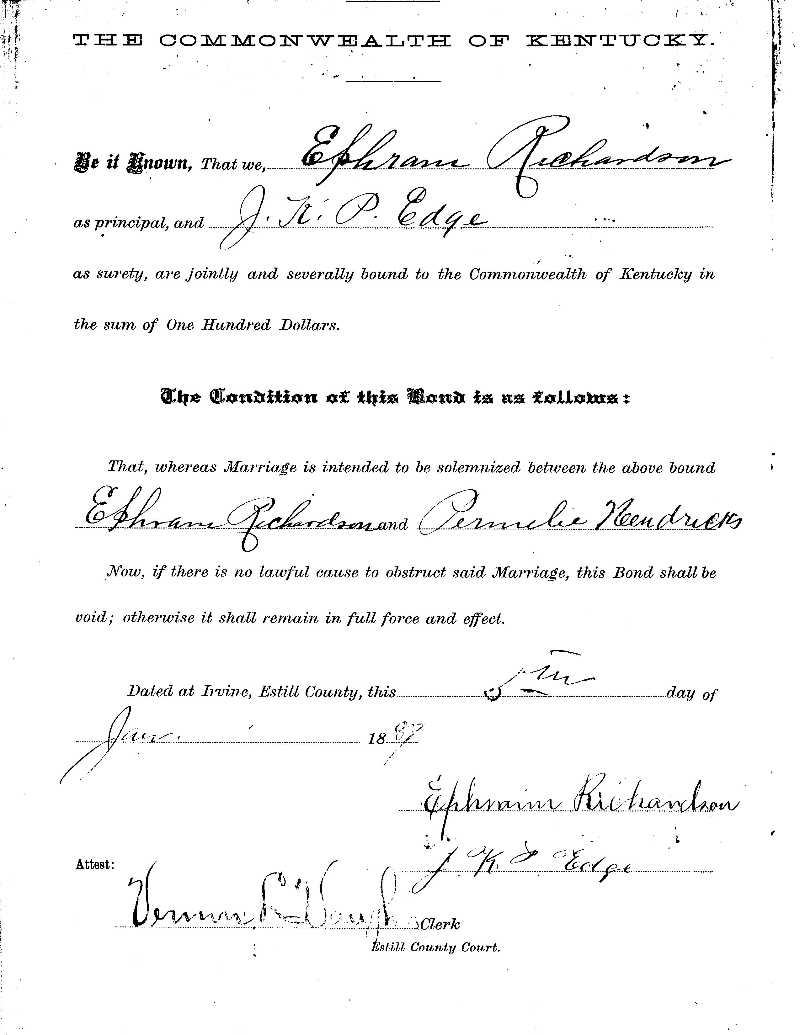 THE COMMONWEALTH OF KENTUCKY.
Be it Known, That we, Ephram Richardson
as principal, and J. K. P. Edge
as surety, are jointly and severally bound to the Commonwealth of Kentucky in
the sum of One Hundred Dollars.
The Condition of this Bond is as follows:
That, whereas Marriage is intended to be solemnized between the above bound
Ephram Richardson and Permelie Hendricks
Now, if there is no lawful cause to obstruct said Marriage, this Bond shall be
void; otherwise it shall remain in full force and effect.
Dated at Irvine, Estill County, this 5th day of
Jan. 18
Ephraim Richardson
J K P Edge
Attest:
Clerk
Estill County Court.